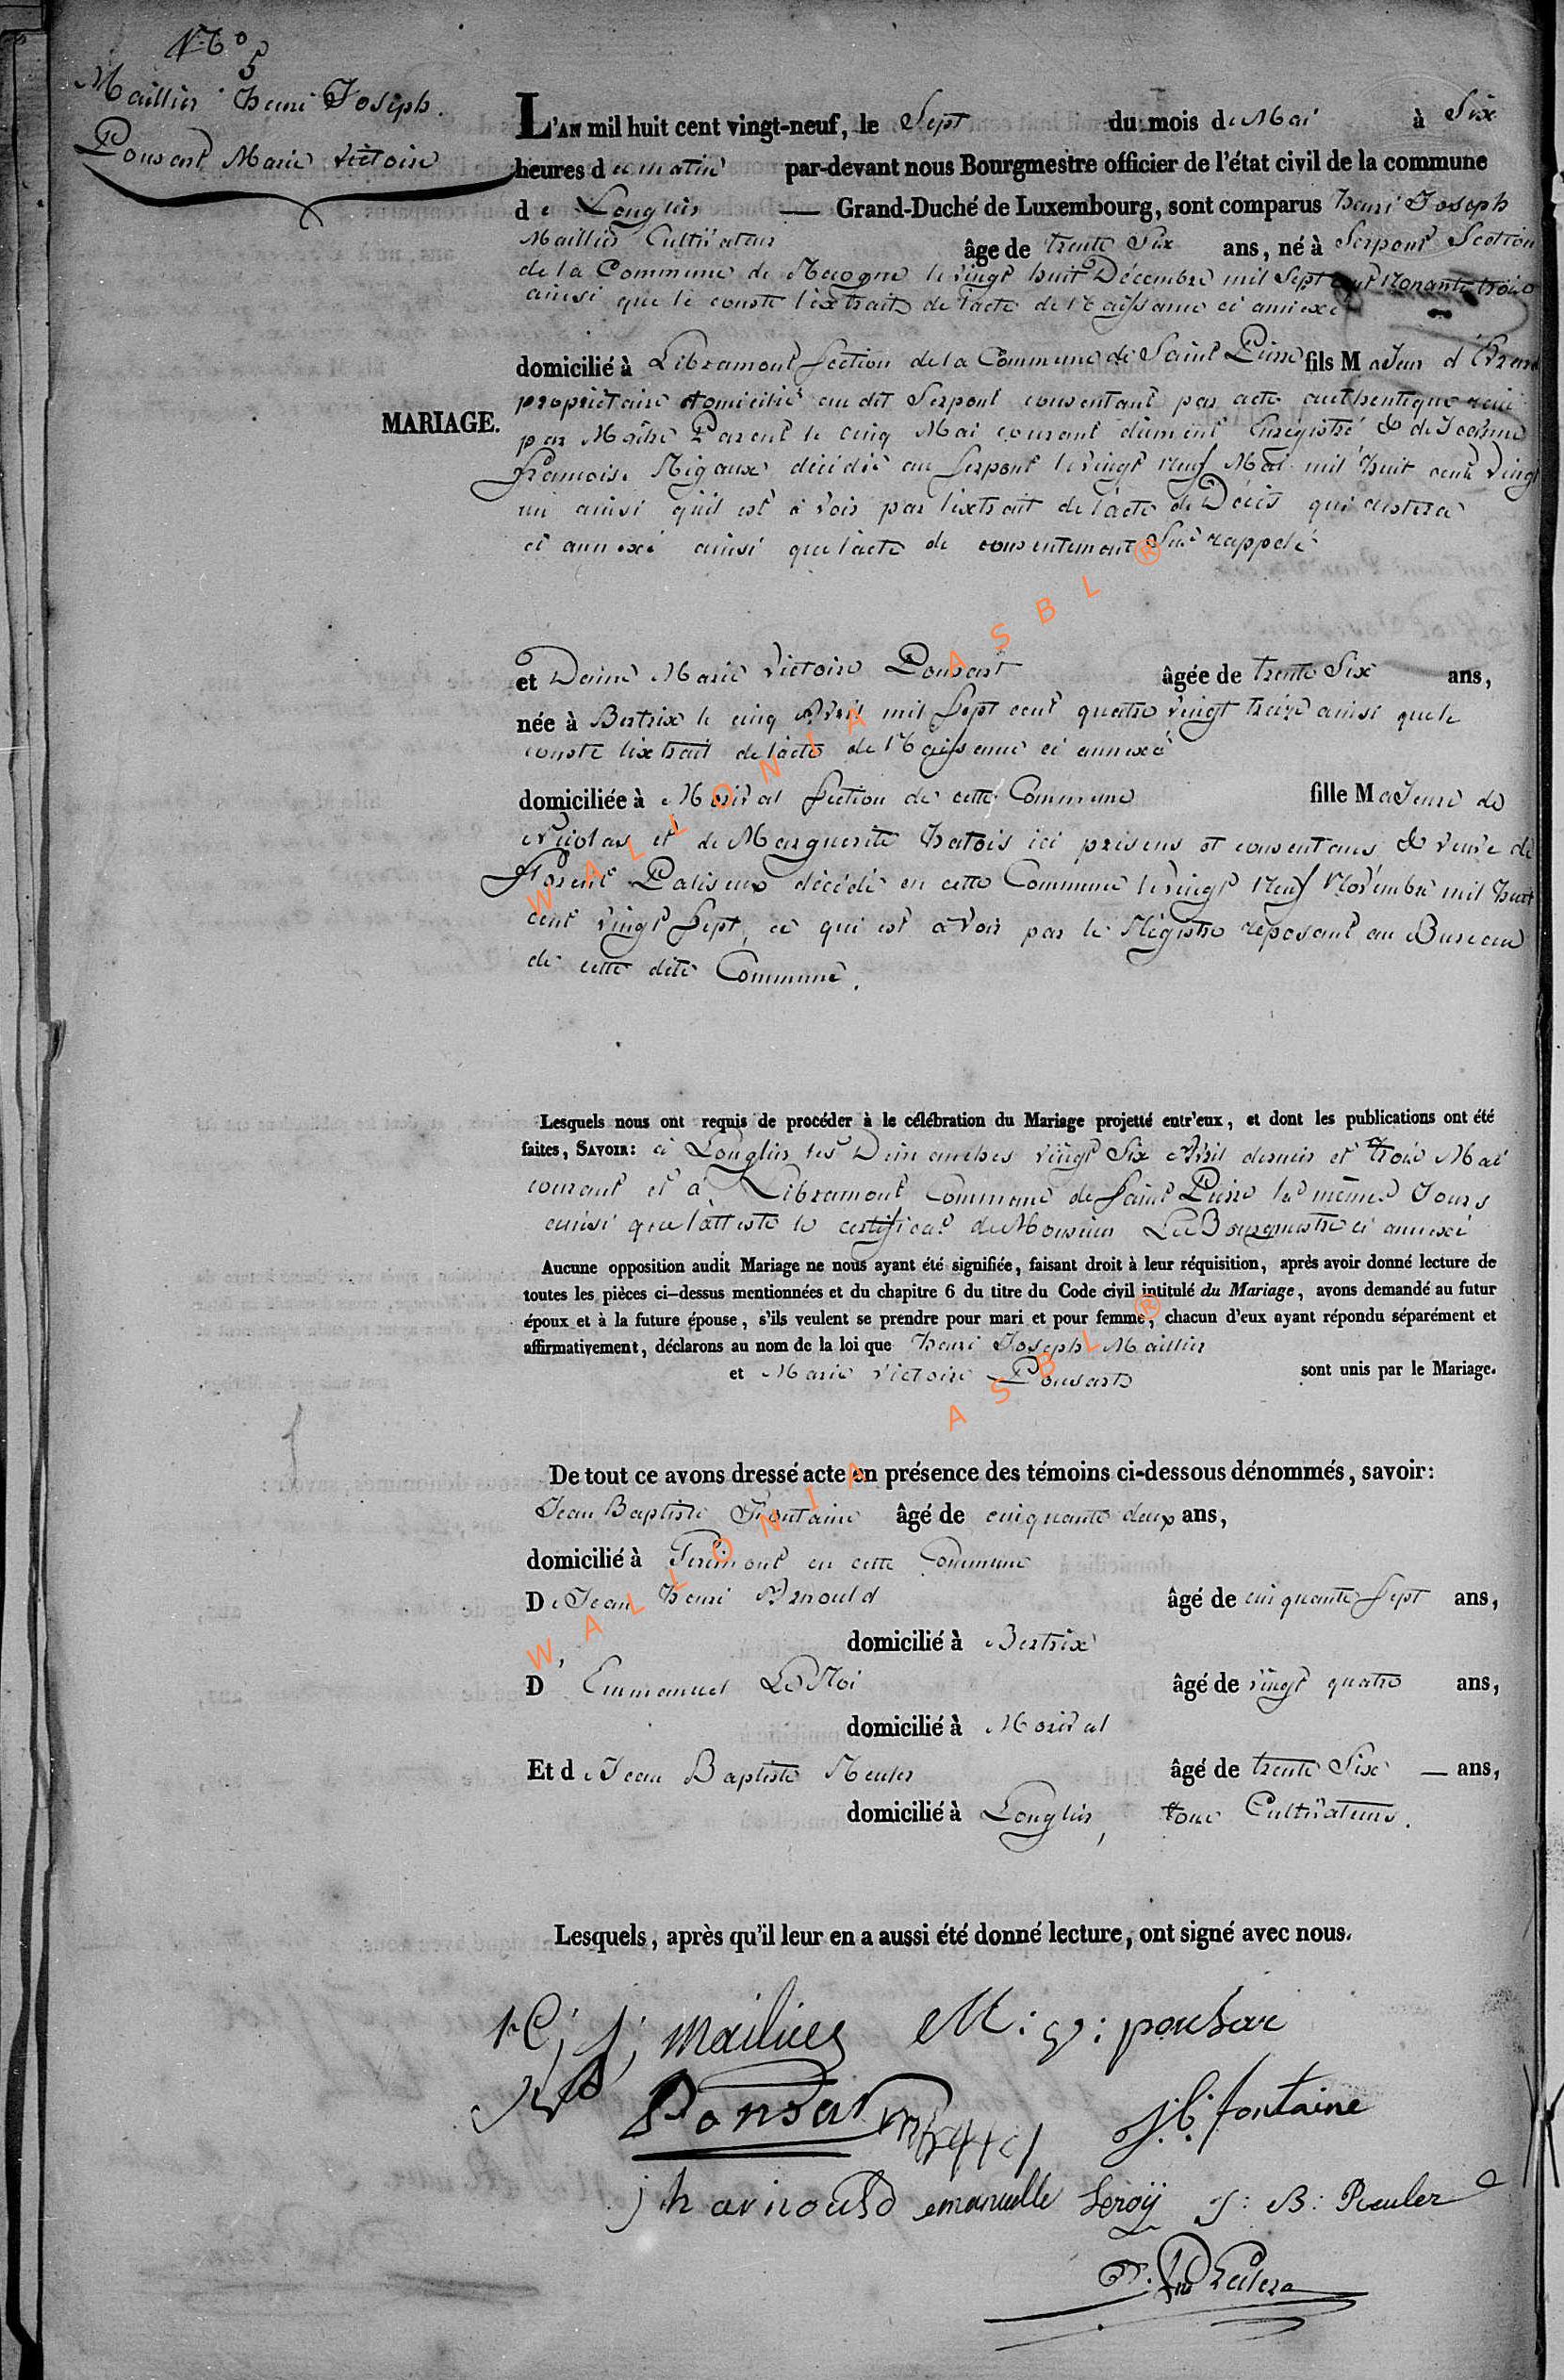 N.º 5
Maillier henri Joseph.
Pousart Marie Victoire
L'AN mil huit cent vingt-neuf, le Sept du mois de Mai à Six
heures du matin par-devant nous Bourgmestre officier de l'état civil de la commune
de Longlier — Grand-Duché de Luxembourg, sont comparus henri Joseph
Maillier Cultivateur âge de trente Six ans, né à Serpont Section
de la Commune de Recogne le vingt huit Décembre mil Sept cent Nonante trois
ainsi que le conste l'extrait de l'acte de Naissance ci annexé
domicilié à Libramont Section de la Commune de Saint Pierre fils Majeur
MARIAGE.
propriétaire domicilié au dit Serpont consentant par acte authentique
par Maître Parent le cinq Mai courant dument Enregistré & de Jeanne
françoise Rigaux décédée au Serpont le vingt Neuf Mai mil huit cent vingt
un ainsi qu'il est à voir par l'extrait de l'acte de Décès qui restera
ci annexé ainsi que l'acte de consentement Sus rappelé
et Dame Marie Victoire Pousart âgée de trente Six ans,
née à Bertrix le cinq Avril mil Sept cent quatre vingt treize ainsi que le
conste l'extrait de l'acte de Naissance ci annexé
domiciliée à Morival Section de cette Commune fille Majeure de
Nicolas et de Marguerite hatois ici présens et consentans & veuve de
Florent Paliseux décédé en cette Commune le vingt Neuf Novembre mil huit
cent vingt Sept, ce qui est à voir par le Régistre reposant au Bureau
de cette dite Commune.
Lesquels nous ont requis de procéder à le célébration du Mariage projetté entr'eux, et dont les publications ont été
faites, SAVOIR: à Longlier les Dimanches vingt Six Avril dernier et trois Mai
courant et à Libramont Commune de Saint Pierre les mêmes Jours
ainsi que l'atteste le certificat de Monsieur Le Bourgmestre ci annexé
Aucune opposition audit Mariage ne nous ayant été signifiée, faisant droit à leur réquisition, après avoir donné lecture de
toutes les pièces ci-dessus mentionnées et du chapitre 6 du titre du Code civil intitulé du Mariage, avons demandé au futur
époux et à la future épouse, s'ils veulent se prendre pour mari et pour femme, chacun d'eux ayant répondu séparément et
affirmativement, déclarons au nom de la loi que henri Joseph Maillier
et Marie Victoire Pousart sont unis par le Mariage.
De tout ce avons dressé acte en présence des témoins ci-dessous dénommés, savoir:
Jean Baptiste Fontaine âgé de cinquante deux ans,
domicilié à Terimont en cette Commune
De Jean henri Arnould âgé de cinquante Sept ans,
domicilié à Bertrix
D' Emmanuel Le Roi âgé de vingt quatre ans,
domicilié à Morival
Et de Jean Baptiste Reuler âgé de trente Six — ans,
domicilié à Longlier, tous Cultivateurs.
Lesquels, après qu'il leur en a aussi été donné lecture, ont signé avec nous.
h; j; mailiier M: v: pousar
Ponsar j. b. fontaine
j h arnould emanuelle Leroÿ J: B: Reuler
WALLONIA ASBL ®
WALLONIA ASBL ®